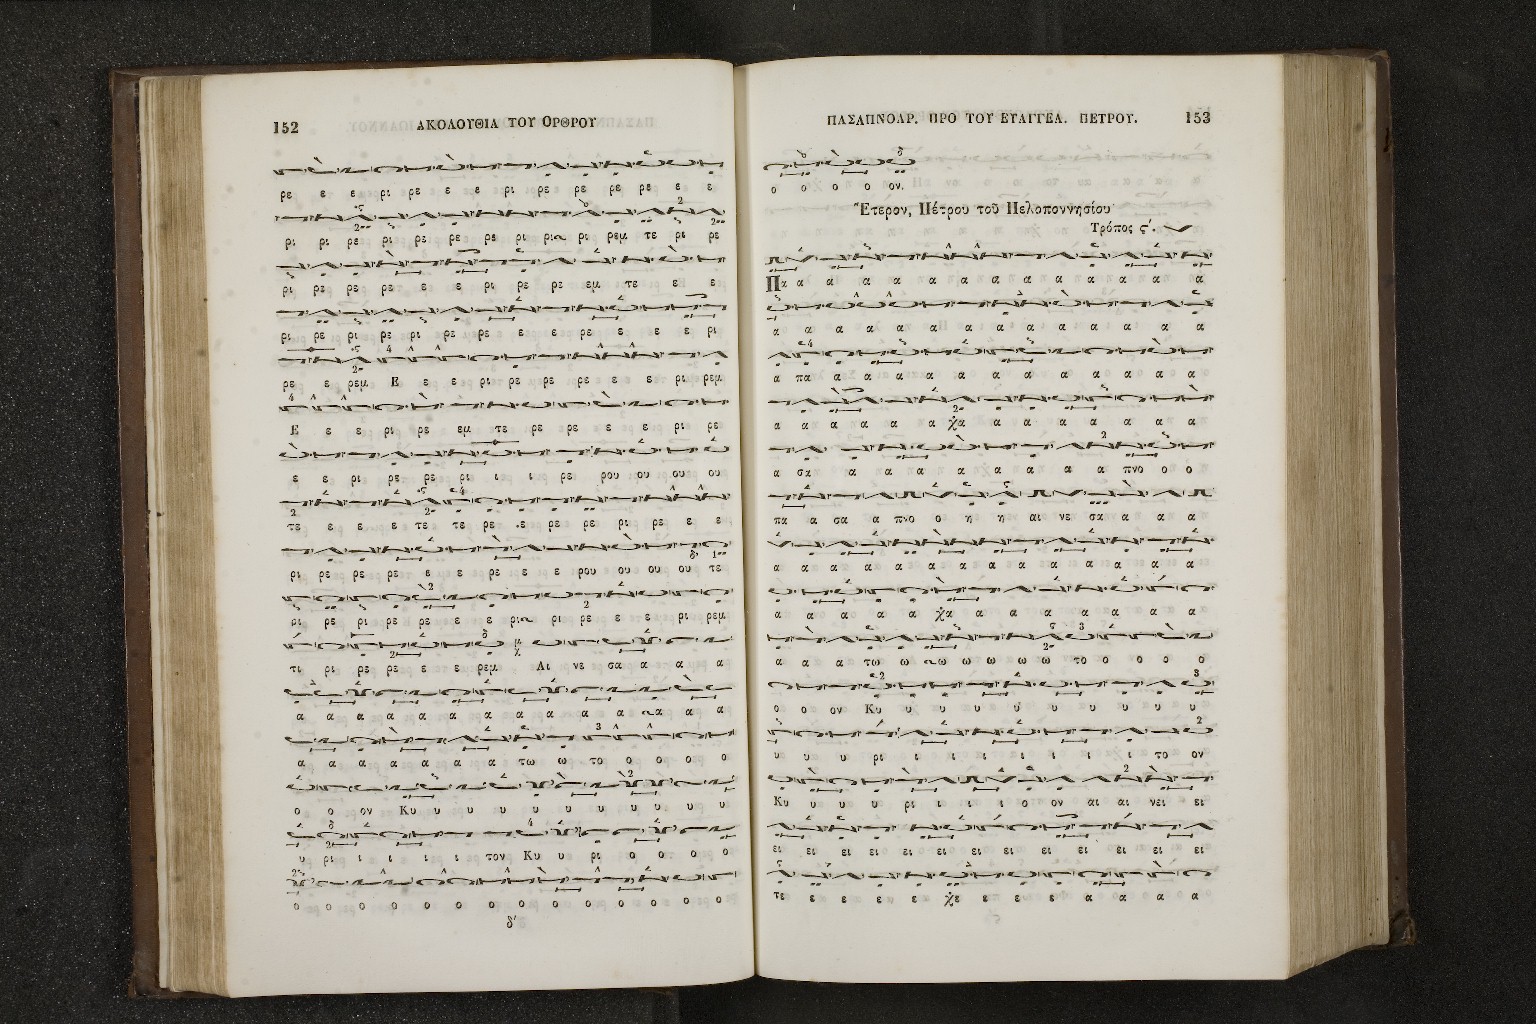 152 ΑΚΟΛΟΥΘΙΑ ΤΟΥ ΟΡΘΡΟΥ
ρε ε ε ρι ρε ε ε ρι ρε ρε ρε ρε ε ε
ρι ρι ρε ρι ρε ρε ρε ρι ρι ρι ρεμ τε ρι ρε
ρι ρε ρε ρε ε ε ρι ρε ρε εμ τε ε ε
ρι ρε ρι ρε ρι ρε ρε ε ε ρε ε ε ε ρι
ρε ε ρεμ Ε ε ε ρι ρε ρε ρε ε ε ρι ρεμ
Ε ε ε ρι ρε εμ τε ρε ρε ε ε ρι ρε
ε ε ρι ρε ρε ρι ι ι ρε ρου ου ου ου
τε ε ε ε τε τε ρε ε ρε ρε ρι ρε ε ε
ρι ρε ρε ρε ε ε ρε ε ε ρου ου ου ου τε
ρι ρε ρι ρε ρε ε ε ρι ρι ρε ε ε ρι ρεμ
τι ρι ρε ρε ε ε ρεμ Αι νε σα α α α
α α α α α α α α α α α α α α
α α α α α α α τω ω το ο ο ο ο
ο ο ον Κυ υ υ υ υ υ υ υ υ υ
υ ρι ι ι ι ι τον Κυ υ ρι ο ο ο ο
ο ο ο ο ο ο ο ο ο ο ο ο ο ο
δ'
ΠΑΣΑΠΝΟΑΡ. ΠΡΟ ΤΟΥ ΕΥΑΓΓΕΛ. ΠΕΤΡΟΥ. 153
ο ο ο ο ον.
Ἕτερον, Πέτρου τοῦ Πελοποννησίου
Τρόπος ς'.
Πα α α α α α α α α α α α α α
α α α α α α α α α α α α α α
α πα α α α α α α α α α α α α
α α α α α α χα α α α α α α α
α σα α α α α α α α α α πνο ο ο
πα α σα α πνο ο η η αι νε σα α α α
α α α α α α α α α α α α α α
α α α α α χα α α α α α α α
α α α τω ω ω ω ω ω το ο ο ο ο
ο ο ον Κυ υ υ υ υ υ υ υ υ υ
υ υ υ ρι ι ι ι ι ι ι ι το ον
Κυ υ υ υ ρι ι ι ι ο ον αι αι νει ει
ει ει ει ει ει ει ει ει ει ει ει ει ει
τε ε ε ε ε χε ε ε ε α α α α